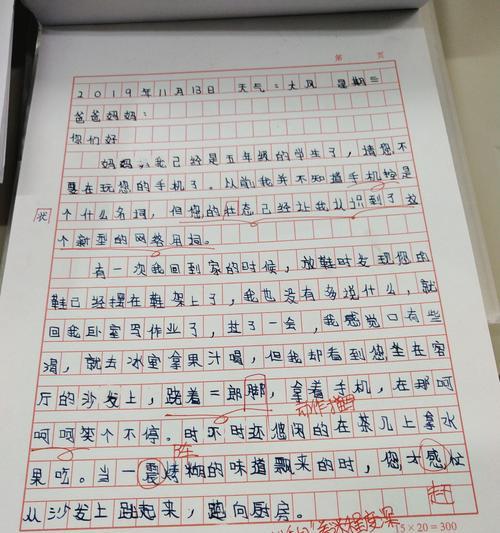 第 页
2019年11月13日 天气:大风 星期三
爸爸妈妈:
你们好
妈妈,我已经是五年级的学生了,请您不
要在玩您的手机了。以前我并不知道手机控是
状
个什么名词,但您的壮态已经让我认识到了这
个新型的网络用词。
有一次我回到家的时候,放鞋时发现您的
鞋已经摆在鞋架上了,我也没有多说什么,就
回我卧室写作业了,过了一会,我感觉口有些
渴,就去冰室拿果汁喝,但我却看到您坐在客
厅的沙发上,跷着二郎脚,拿着手机,在那呵
动作描
呵呵笑个不停。时不时还悠闲的在茶几上拿水
果吃。当一震烤糊的味道飘来的时,您才感忙
从沙发上跳起来,跑向厨房。
赶
15×20=300